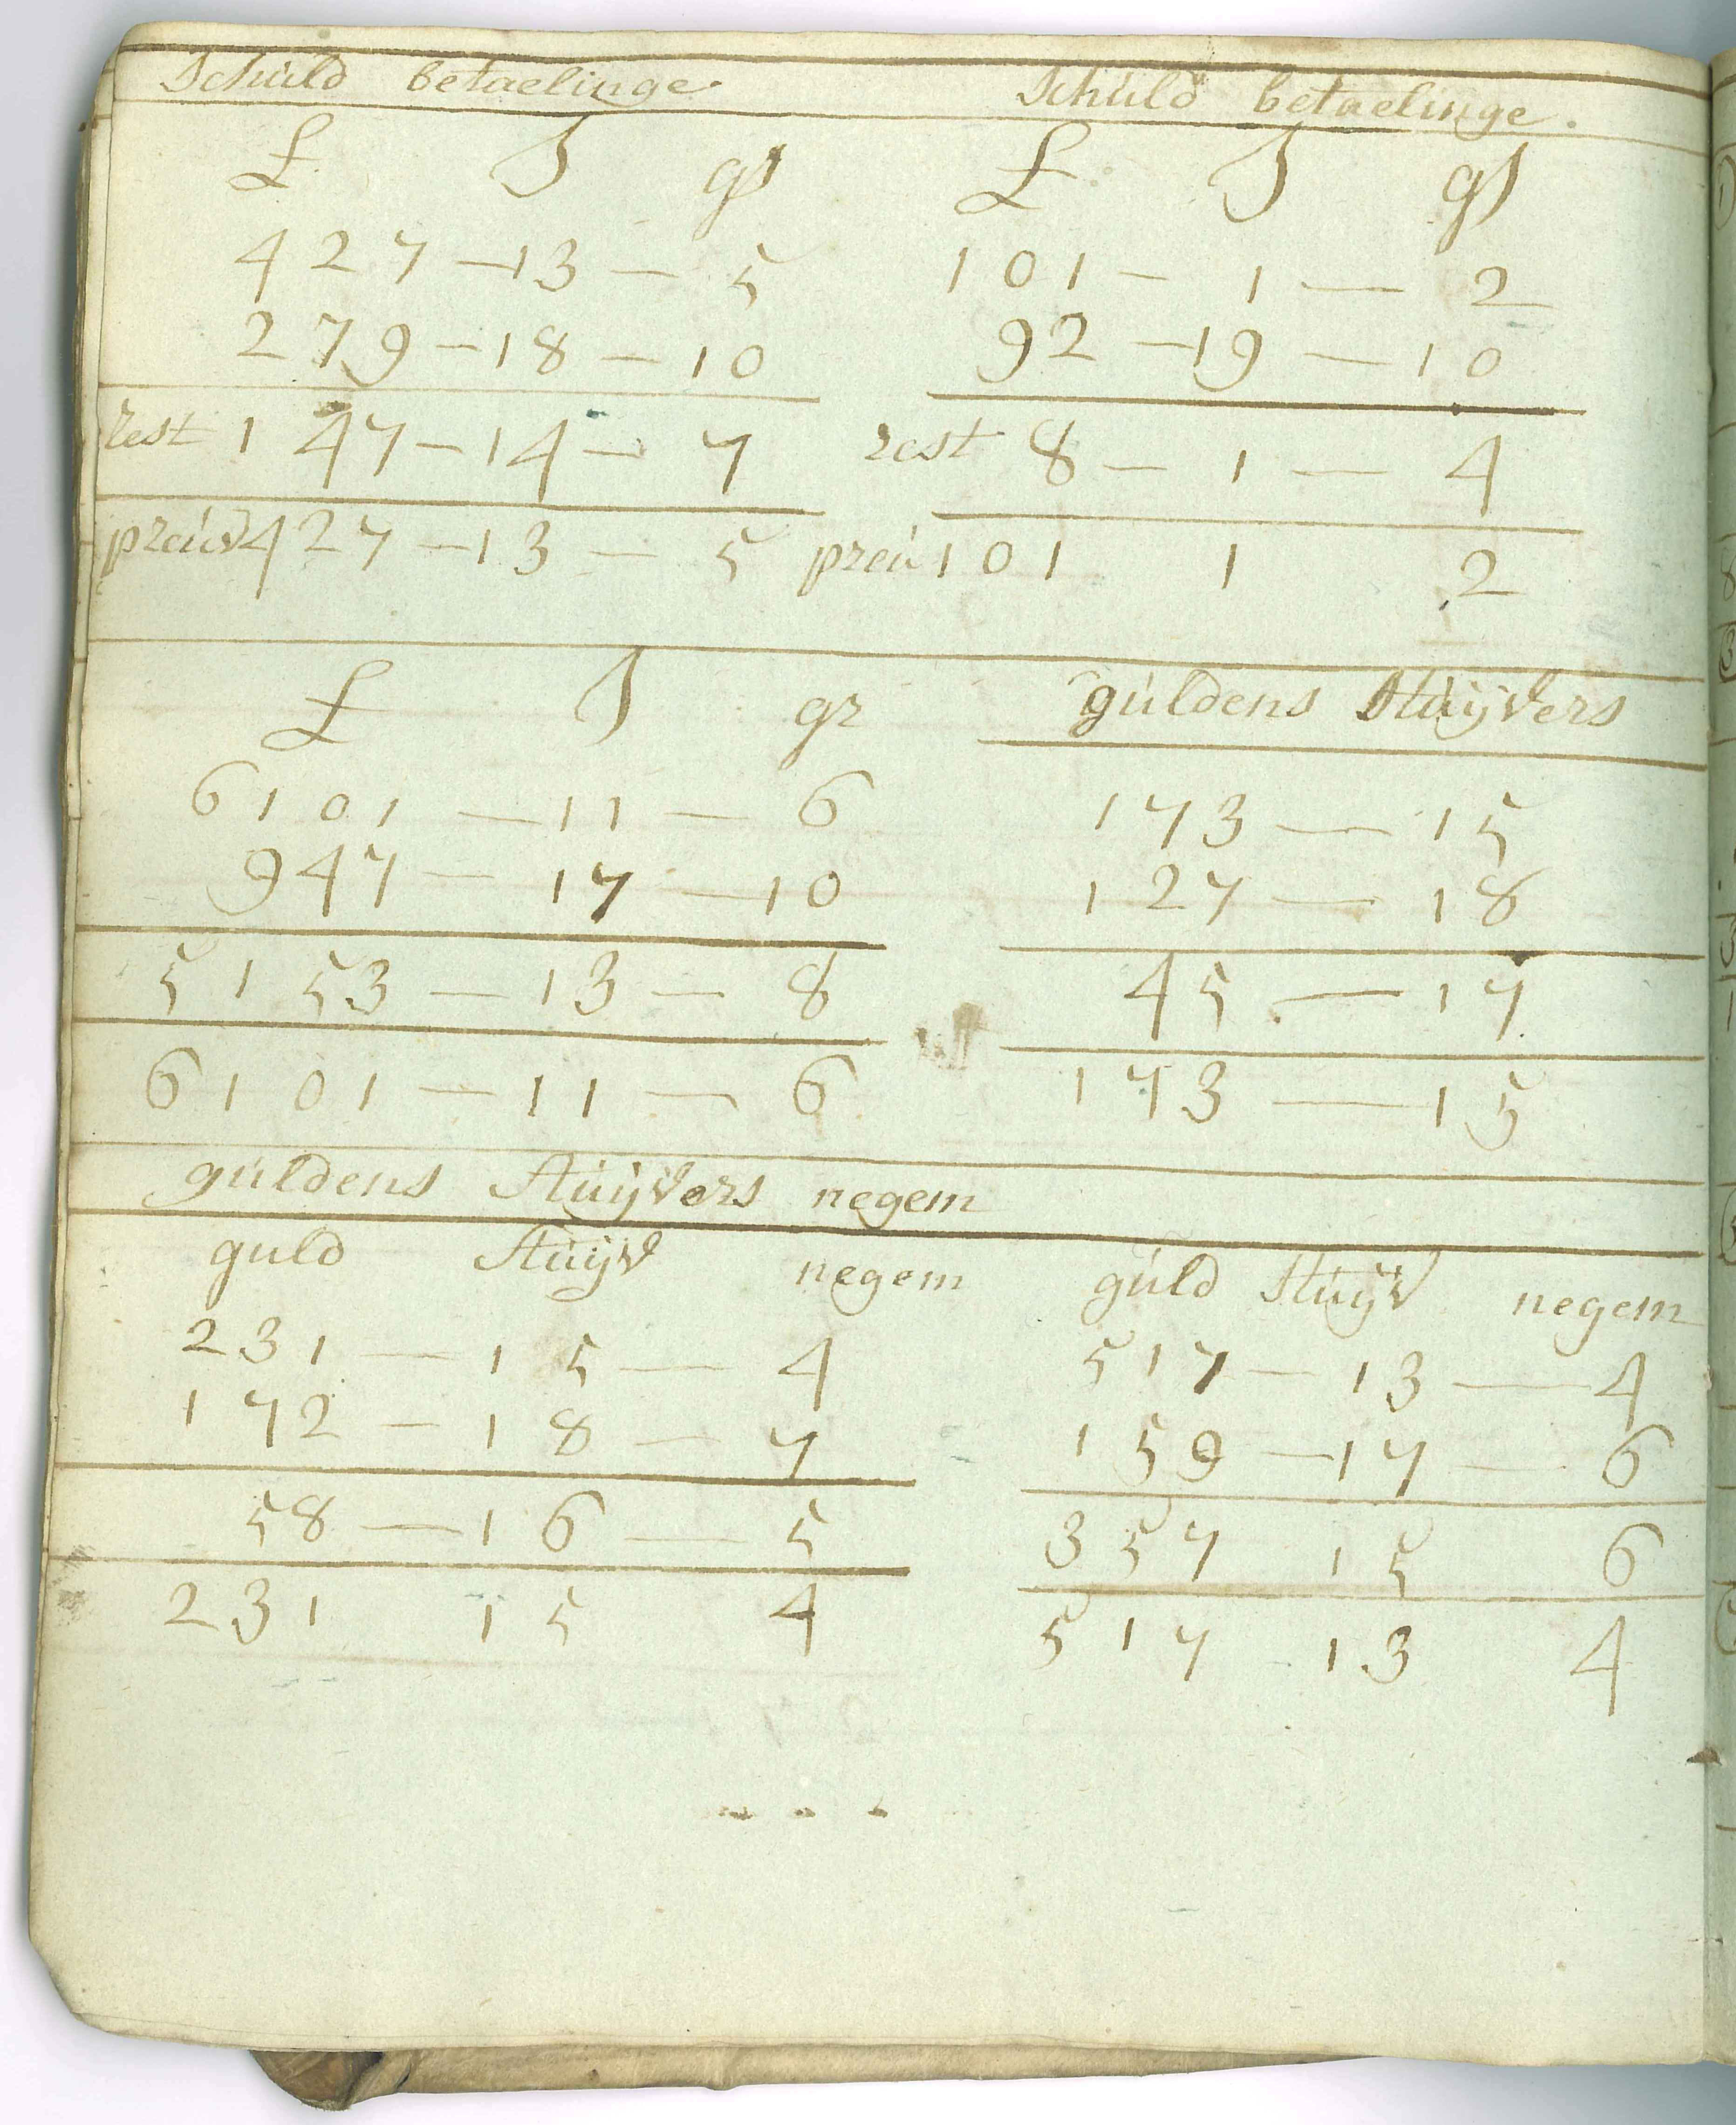 Schuld betaelinge.
£ S gs
427 — 13 — 5
279 — 18 — 10
rest 147 — 14 — 7
preuv 427 — 13 — 5
Schuld betaelinge.
£ S gs
101 — 1 — 2
92 — 19 — 10
rest 8 — 1 — 4
preu 101 1 2
£ S gr
6101 — 11 — 6
947 — 17 — 10
5153 — 13 — 8
6101 — 11 — 6
guldens Stuyvers
173 — 15
127 — 18
45 — 17
173 — 15
guldens Stuyvers negem
guld Stuyv negem
231 — 15 — 4
172 — 18 — 7
58 — 16 — 5
231 15 4
guld Stuyv negem
517 — 13 — 4
159 — 17 — 6
357 15 6
517 13 4